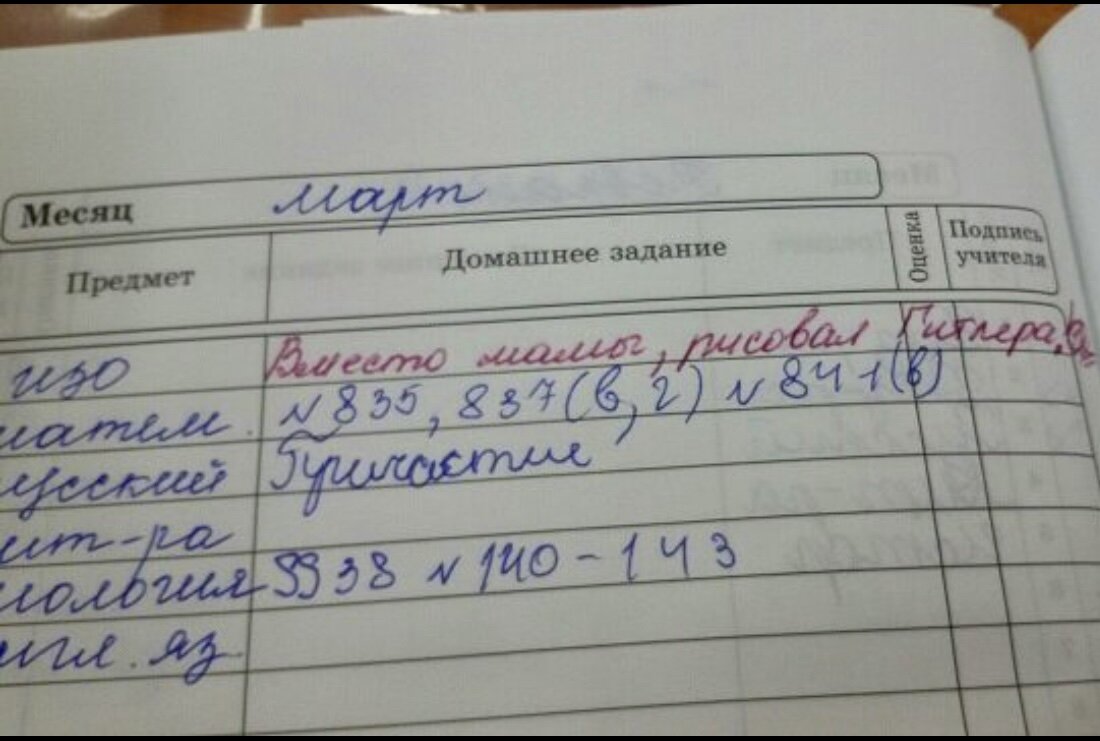 Месяц март
Предмет Домашнее задание Оценка Подпись учителя
изо Вместо мамы, рисовал Гитлера.
матем. №835, 837(в,г) №841(в)
русский Причастие
лит-ра
биология §§38 №140-143
англ. яз.